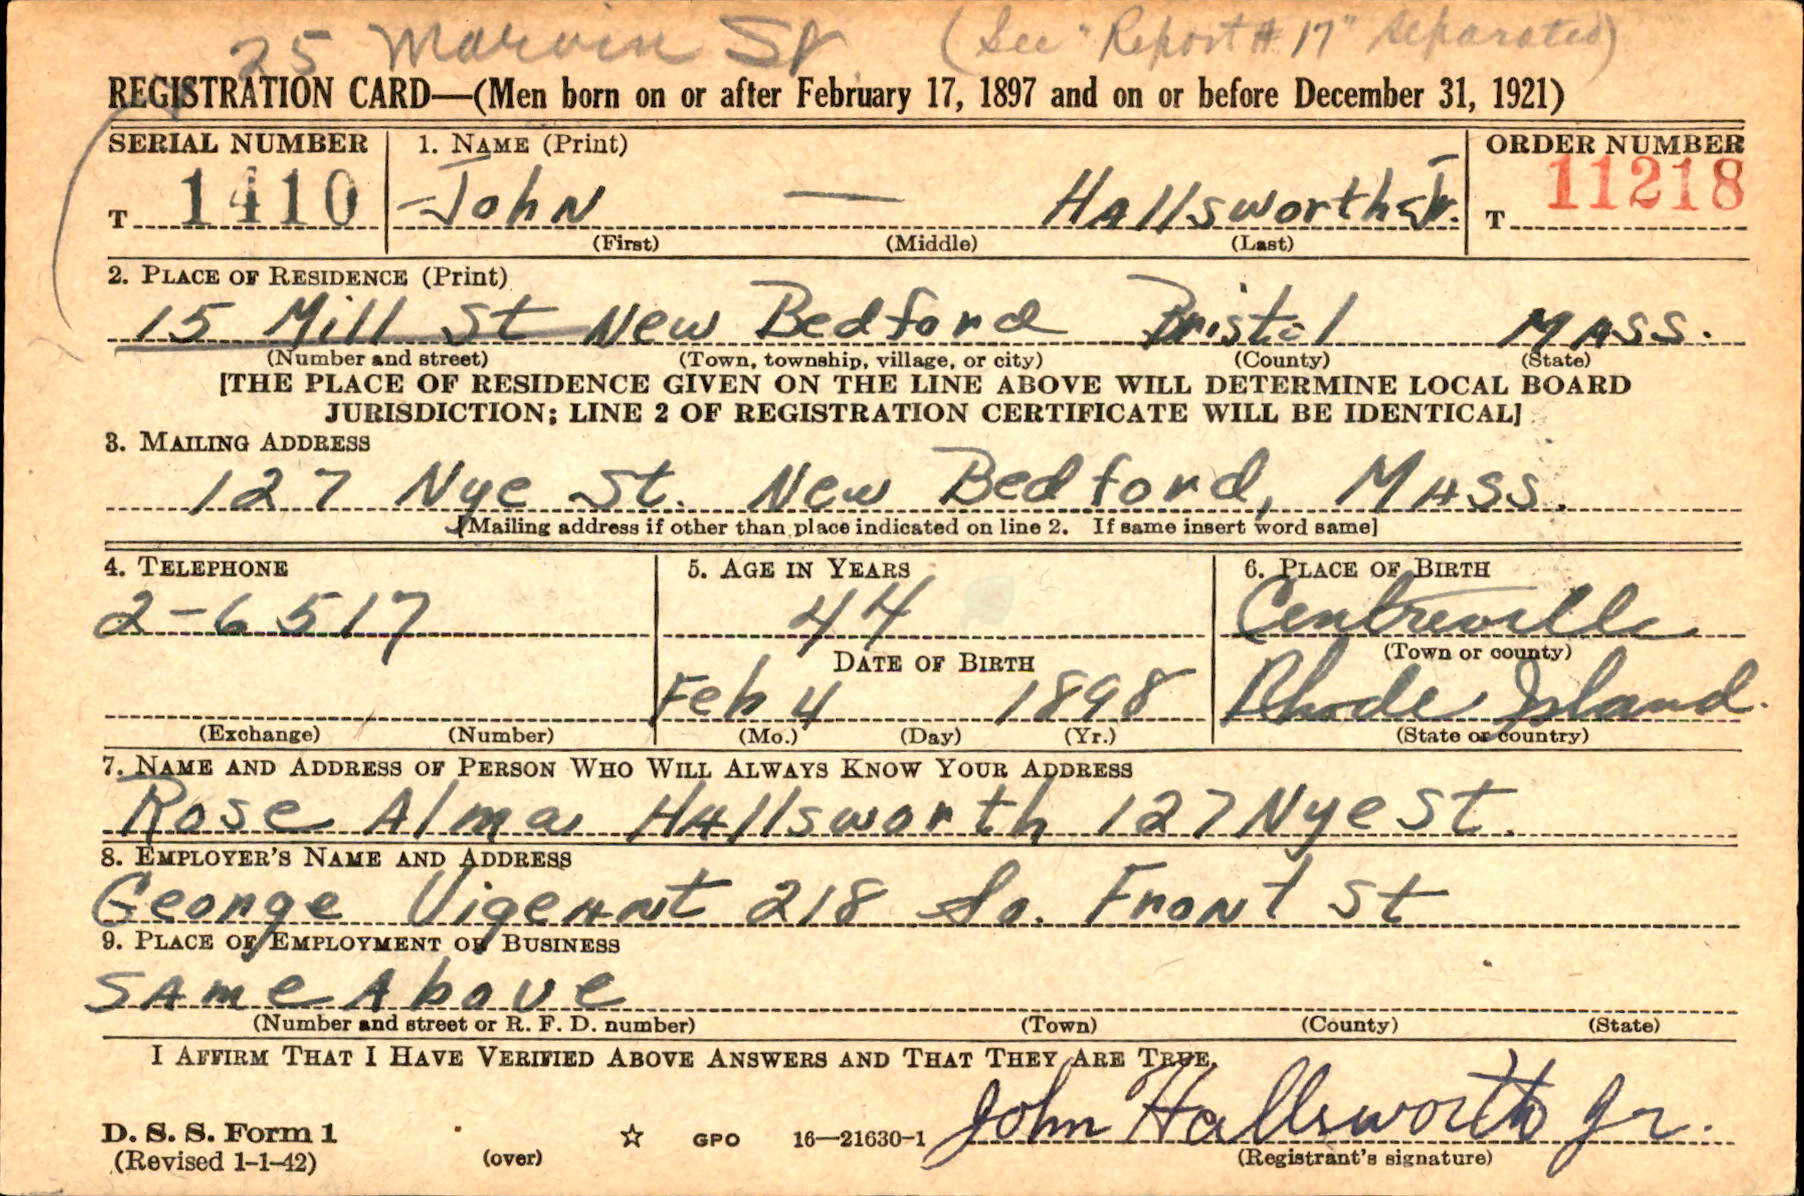 25 Marvin St (See "Report # 17" Separated)
REGISTRATION CARD—(Men born on or after February 17, 1897 and on or before December 31, 1921)
SERIAL NUMBER 1. NAME (Print) ORDER NUMBER
T 1410 John — Hallsworth Jr. T 11218
(First) (Middle) (Last)
2. PLACE OF RESIDENCE (Print)
15 Mill St New Bedford Bristol MASS.
(Number and street) (Town, township, village, or city) (County) (State)
[THE PLACE OF RESIDENCE GIVEN ON THE LINE ABOVE WILL DETERMINE LOCAL BOARD
JURISDICTION; LINE 2 OF REGISTRATION CERTIFICATE WILL BE IDENTICAL]
3. MAILING ADDRESS
127 Nye St. New Bedford, MASS.
[Mailing address if other than place indicated on line 2. If same insert word same]
4. TELEPHONE 5. AGE IN YEARS 6. PLACE OF BIRTH
2-6517 44 Centreville
DATE OF BIRTH (Town or county)
Feb 4 1898 Rhode Island.
(Exchange) (Number) (Mo.) (Day) (Yr.) (State or country)
7. NAME AND ADDRESS OF PERSON WHO WILL ALWAYS KNOW YOUR ADDRESS
Rose Alma Hallsworth 127 Nye St.
8. EMPLOYER'S NAME AND ADDRESS
George Vigeant 218 So. Front St
9. PLACE OF EMPLOYMENT OR BUSINESS
SAme Above
(Number and street or R. F. D. number) (Town) (County) (State)
I AFFIRM THAT I HAVE VERIFIED ABOVE ANSWERS AND THAT THEY ARE TRUE.
John Hallsworth Jr.
D. S. S. Form 1
(Revised 1-1-42) (over) ☆ GPO 16—21630-1 (Registrant's signature)